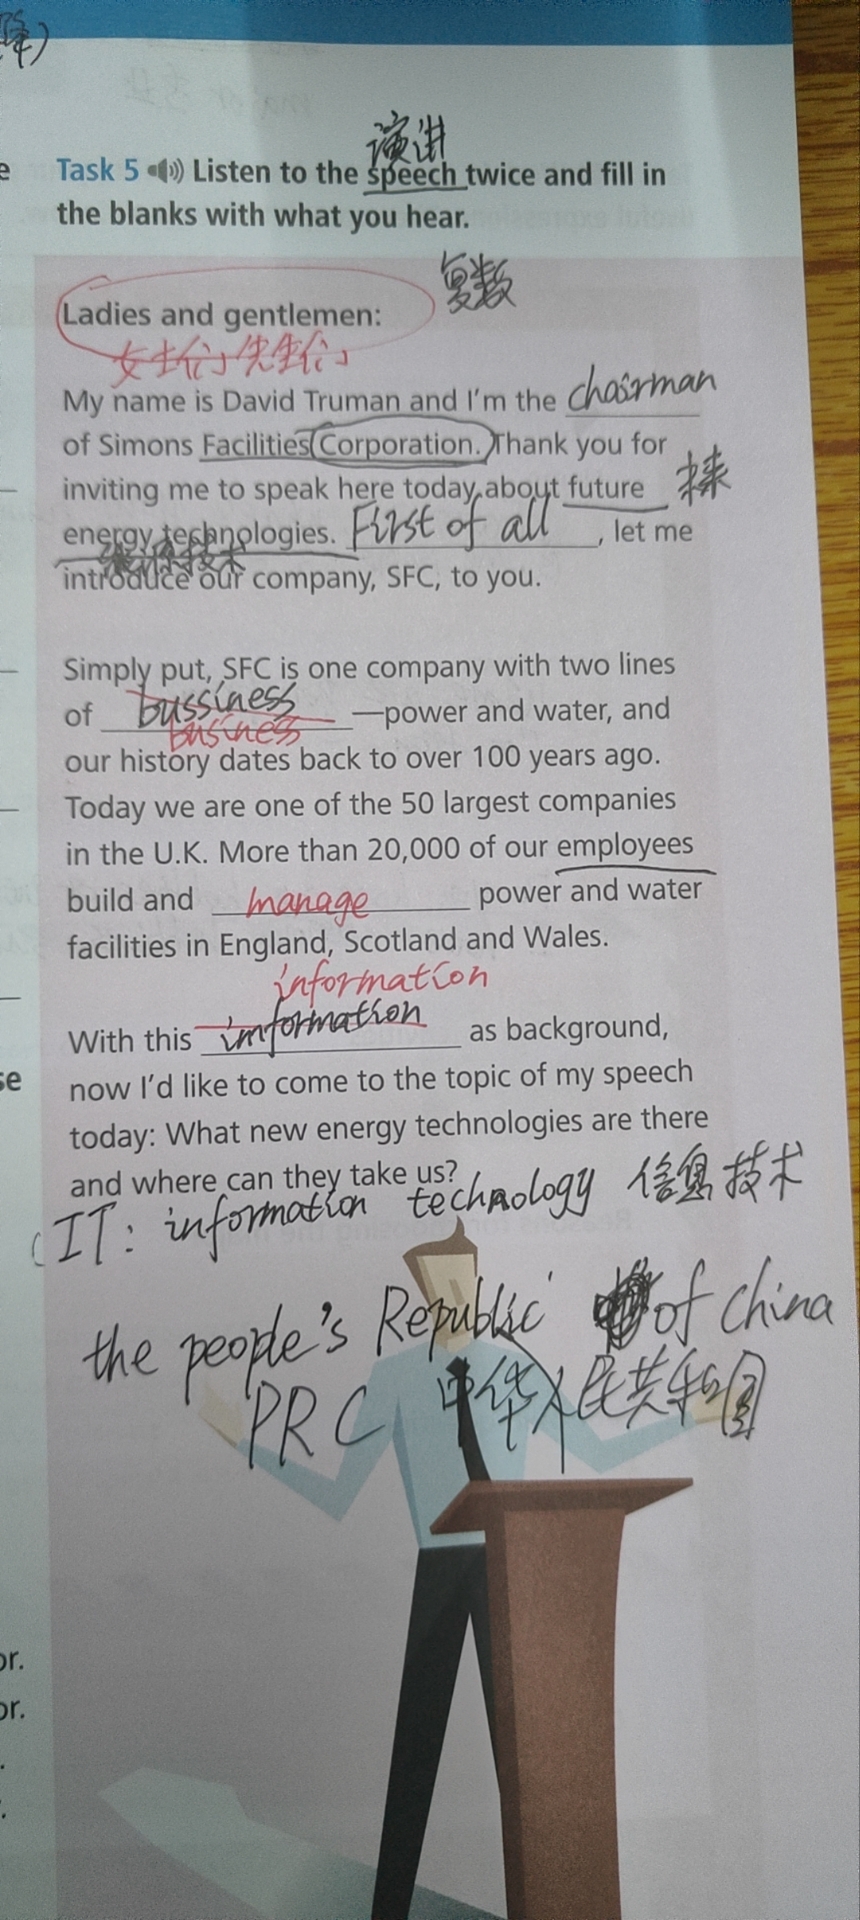 降)
演讲
e Task 5 Listen to the speech twice and fill in
the blanks with what you hear.
复数
Ladies and gentlemen:
女士们 先生们
My name is David Truman and I'm the chairman
of Simons Facilities Corporation. Thank you for
inviting me to speak here today about future
energy technologies. First of all, let me
introduce our company, SFC, to you.
Simply put, SFC is one company with two lines
of bussiness —power and water, and
business
our history dates back to over 100 years ago.
Today we are one of the 50 largest companies
in the U.K. More than 20,000 of our employees
build and manage power and water
facilities in England, Scotland and Wales.
information
With this imformation as background,
se now I'd like to come to the topic of my speech
today: What new energy technologies are there
and where can they take us?
IT: information technology 信息技术
the people's Republic of China
PRC 中华人民共和国
or.
or.